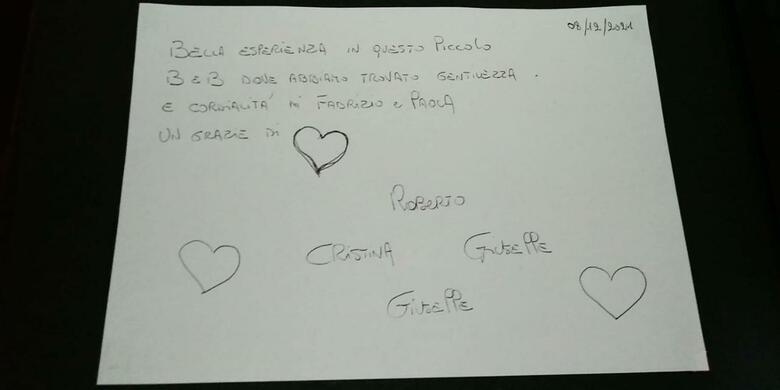 08/12/2021
BELLA ESPERIENZA IN QUESTO PICCOLO
B E B DOVE ABBIAMO TROVATO GENTILEZZA.
E CORDIALITÀ DI FABRIZIO E PAOLA
UN GRAZIE DI
ROBERTO
CRISTINA GIUSEPPE
GIUSEPPE